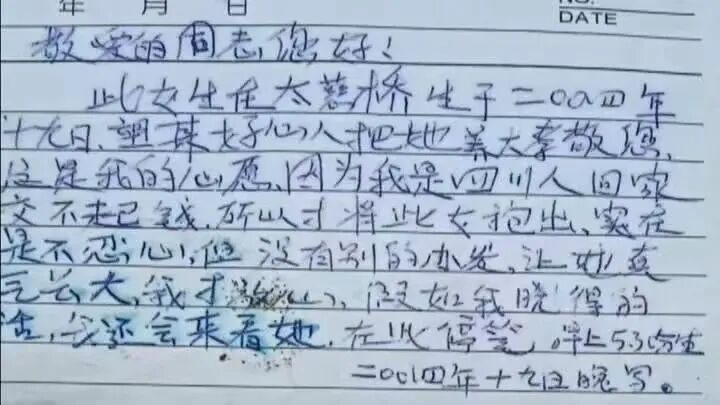 年 月 日 NO.
DATE
敬爱的同志,您好!
此女生在太慈桥生于二00四年
十九日,望某好心人把她养大孝敬您,
这是我的心愿,因为我是四川人回家
交不起已钱,所以才将此女抱出,实在
是不忍心,但没有别的办法,让她直
长大,我才心,假如我晓得的
话,我还会来看她,在此停笔,上530
二00四年十九日晚写。